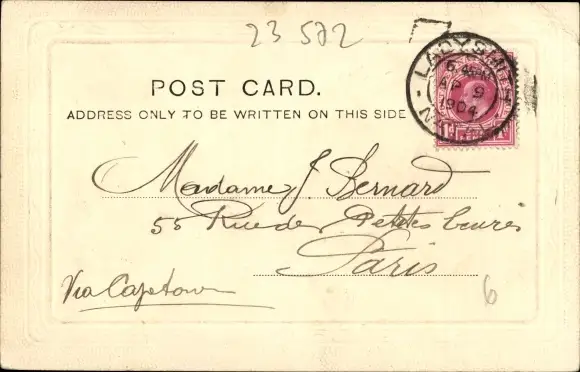 23 572
LADYSMITH
AP 9
1904
POST CARD.
ADDRESS ONLY TO BE WRITTEN ON THIS SIDE
Madame J. Bernard
55 Rue des Petites Écuries
Paris
Via Capetown
6